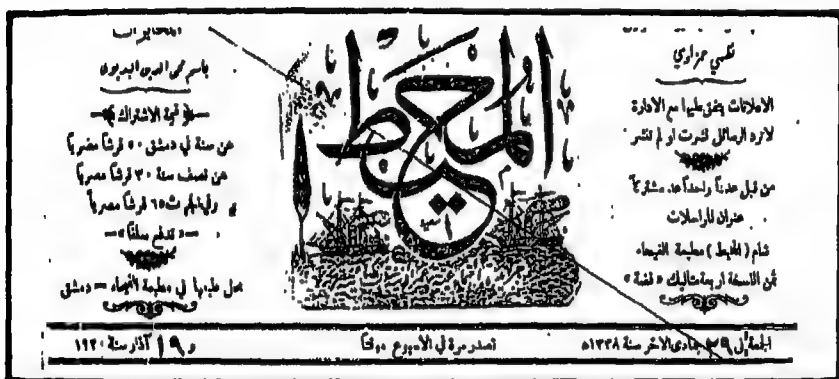 نظمي حمزاوي
الاعلانات يتفق عليها مع الادارة
لا ترد الرسائل نشرت او لم تنشر
من قبل عدداً واحداً عد مشتركاً
عنوان المراسلات
شام (المحيط) مطبعة الفيحاء
ثمن النسخة اربعة متاليك «فضة»
المحيط
المخابرات
باسم محي الدين البديوي
قيمة الاشتراك
عن سنة في دمشق ٥٠ قرشاً مصرياً
عن نصف سنة ٣٠ قرشاً مصرياً
وفي الجهات ٦٥ قرشاً مصرياً
«تدفع سلفاً»
محل طبعها في مطبعة الفيحاء = دمشق
الجمعة في ٢٩ جمادى الاخر سنة ١٣٣٨ه
تصدر مرة في الاسبوع موقتاً
و ١٩ آذار سنة ١٩٢٠